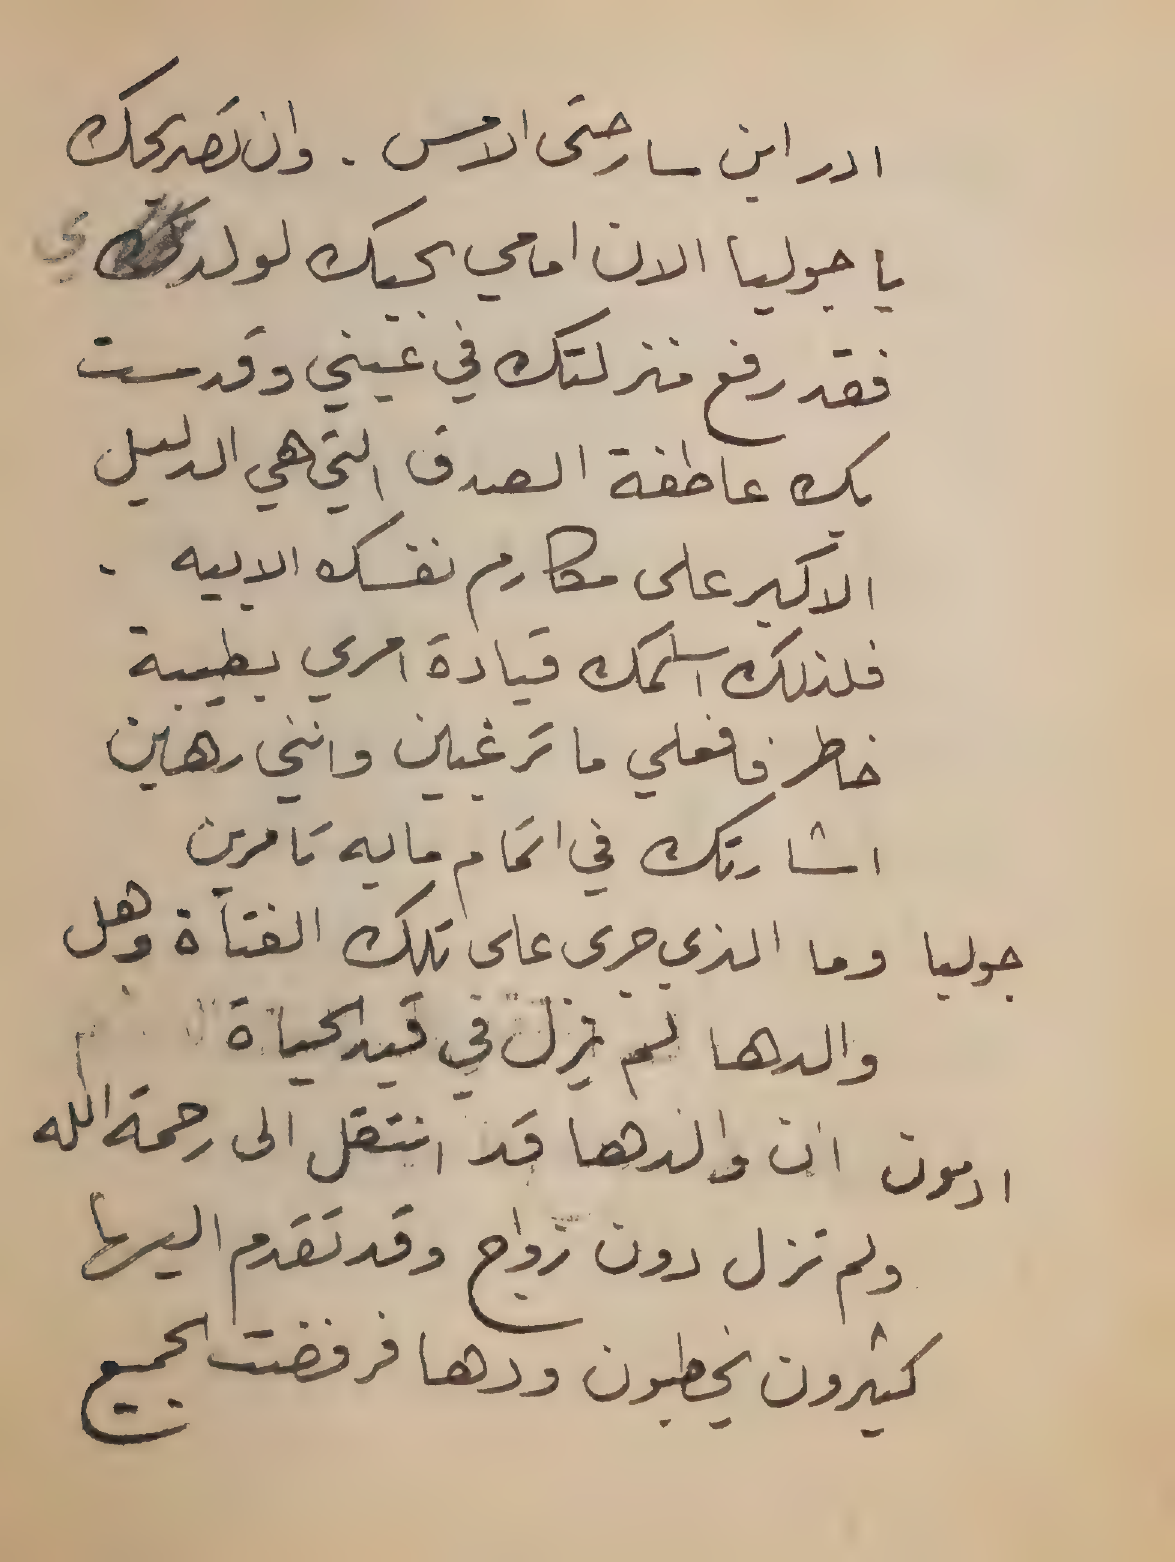 ادر اين سار حتى الامس . وان تصريحك
يا جوليا الان امامي بحبك لولدي
فقد رفع منزلتك في عيني وقدست
بك عاطفة الصدق التي هي الدليل
الاكبر على مكارم نفسك الابيه .
فلذلك اسلمك قيادة امري بطيبة
خاطر فافعلي ما ترغبين وانني رهين
اشارتك في اتمام ما به تامرين
جوليا وما الذي جرى على تلك الفتاة وهل
والدها لم يزل في قيد الحياة
ادمون ان والدها قد انتقل الى رحمة الله
ولم تزل دون زواج وقد تقدم اليها
كثيرون يخطبون ودها فرفضت الجميع